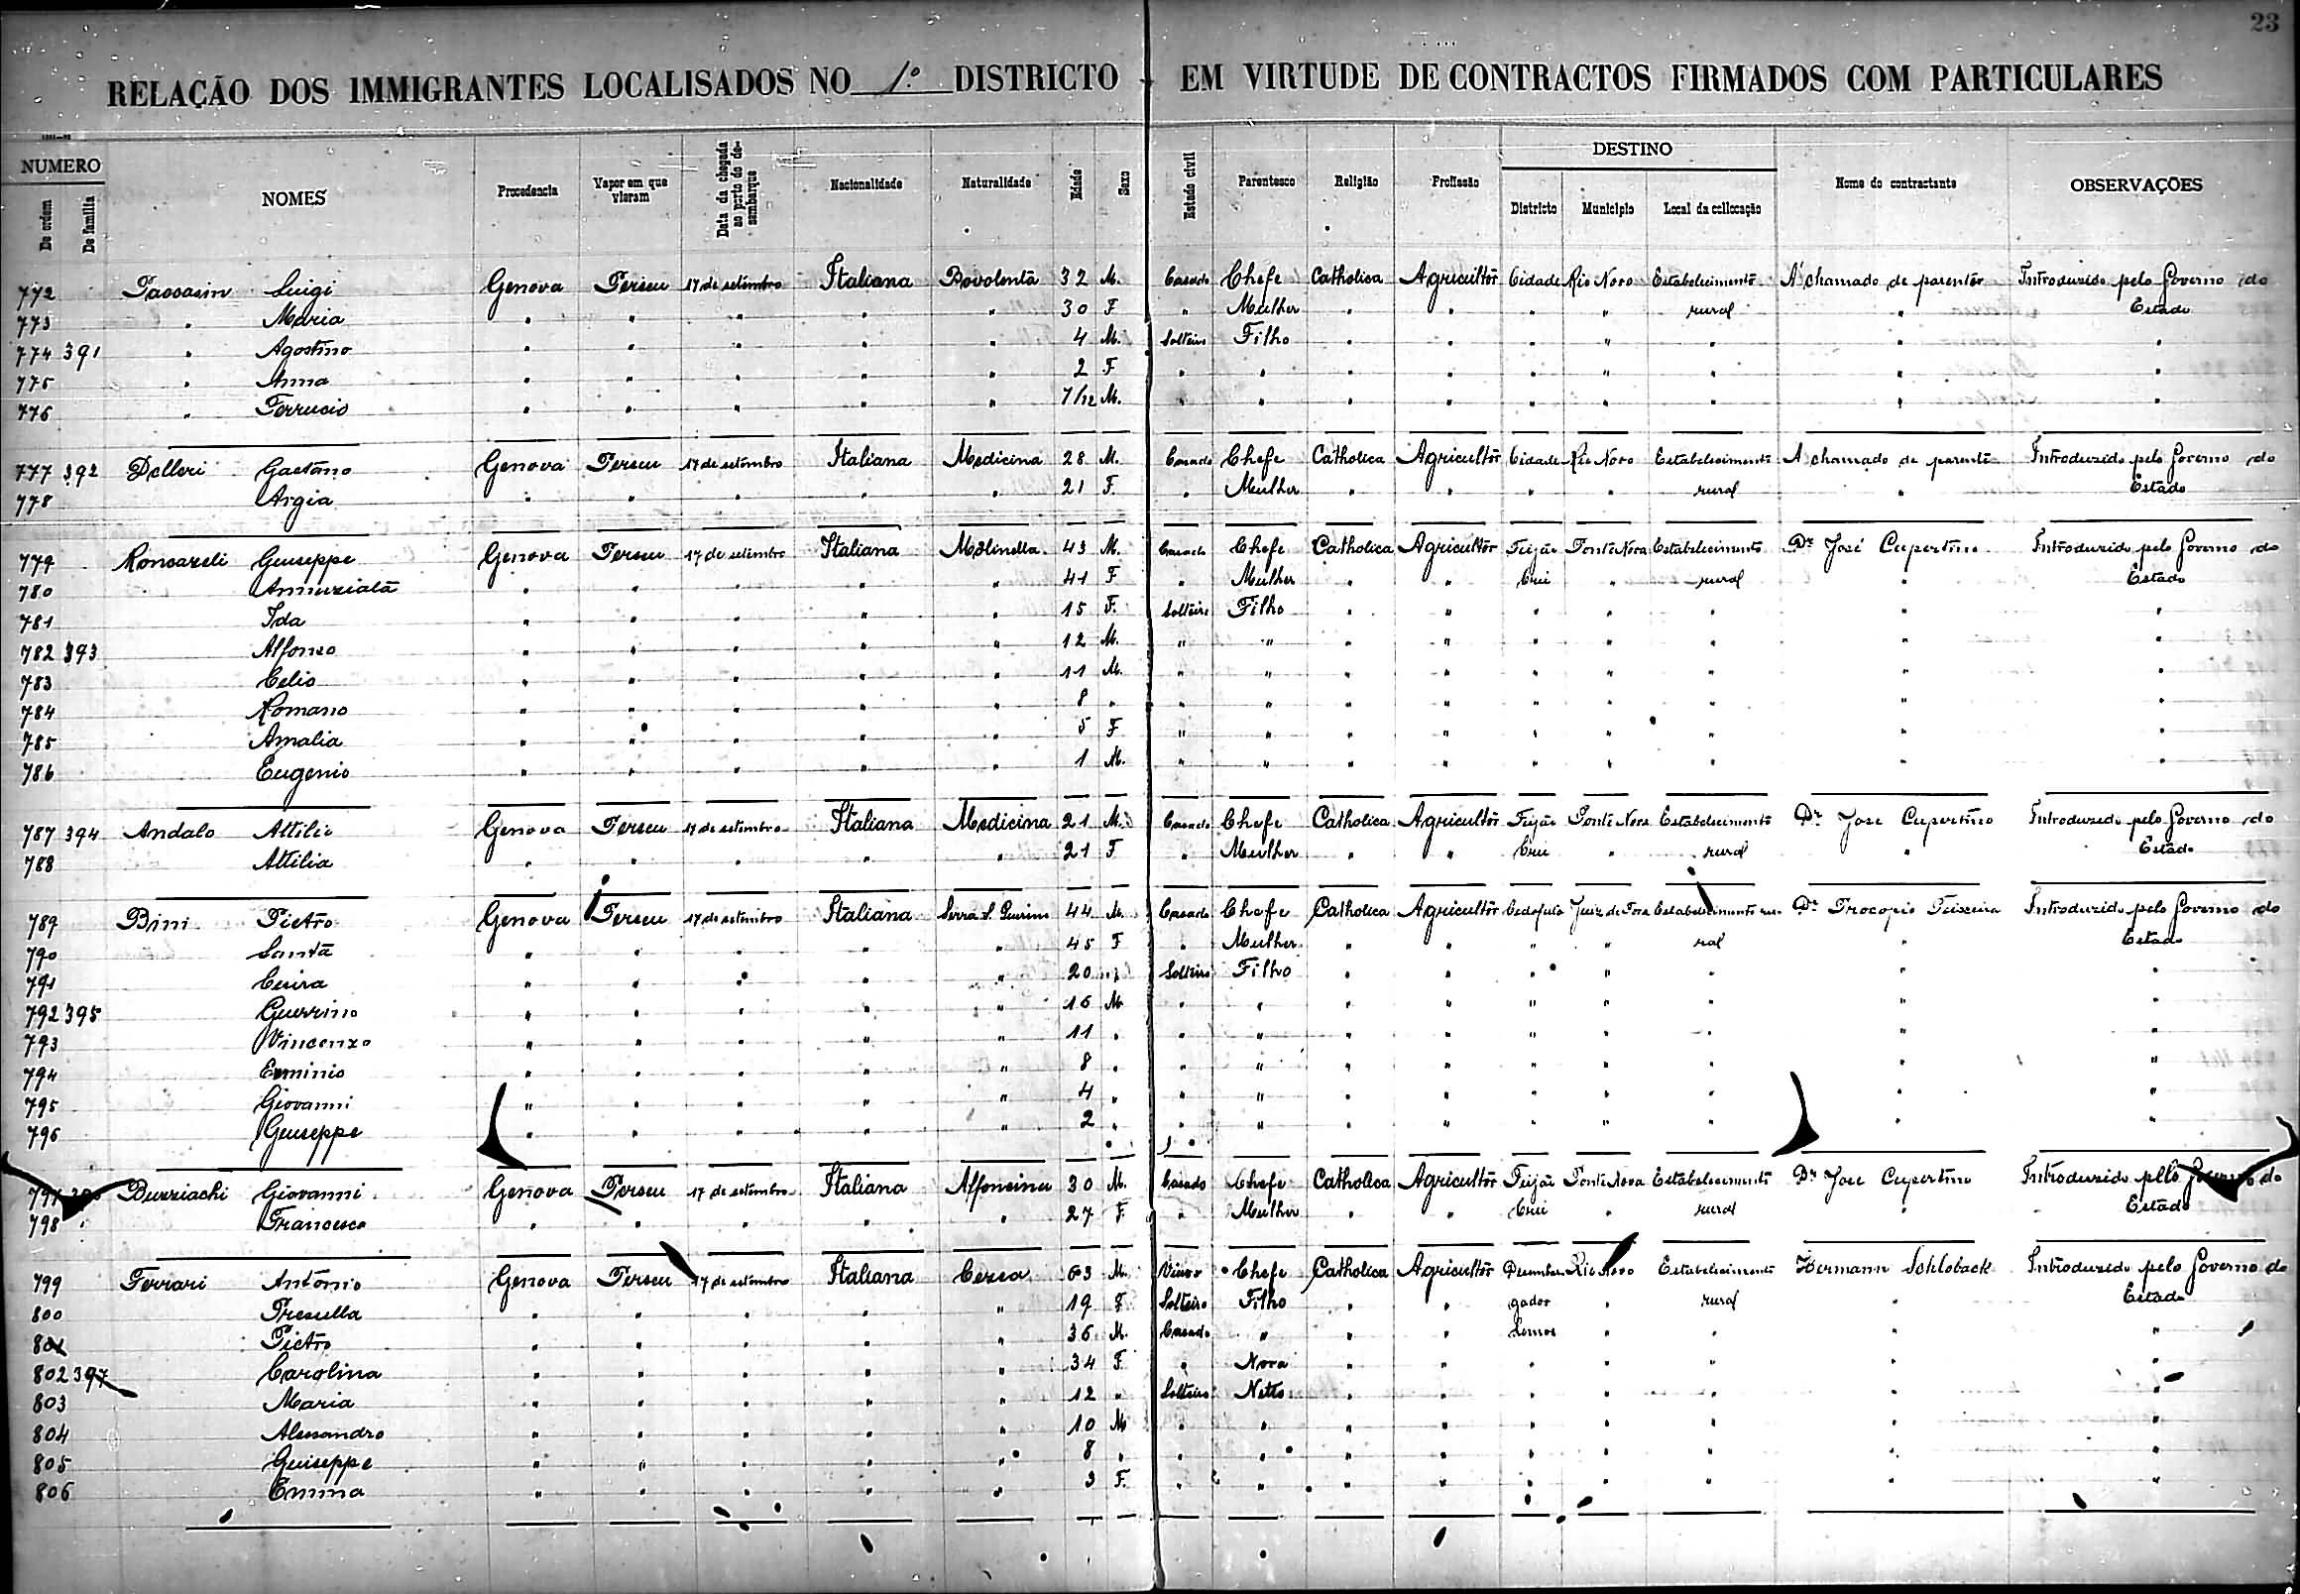 23
RELAÇÃO DOS IMMIGRANTES LOCALISADOS NO 1.º DISTRICTO EM VIRTUDE DE CONTRACTOS FIRMADOS COM PARTICULARES
NUMERO
De ordem
De familia
NOMES
Procedencia
Vapor em que vieram
Data da chegada ao porto de desembarque
Nacionalidade
Naturalidade
Edade
Sexo
Estado civil
Parentesco
Religião
Profissão
DESTINO
Districto
Municipio
Local da collocação
Nome do contractante
OBSERVAÇÕES
772 Passasin Luigi Genova Perseu 17 de setembro Italiana Bovolenta 32 M. Casado Chefe Catholica Agricultor Cidade Rio Novo Estabelecimento A' chamado de parentes Introduzido pelo Governo do
773 " Maria " " " " " 30 F " Mulher " " " " rural " Estado
774 391 " Agostino " " " " " 4 M. Solteiro Filho " " " " " " "
775 " Anna " " " " " 2 F " " " " " " " " "
776 " Ferrucio " " " " " 7/12 M. " " " " " " " " "
777 392 Delleri Gaetano Genova Perseu 17 de setembro Italiana Medicina 28 M. Casado Chefe Catholica Agricultor Cidade Rio Novo Estabelecimento A chamado de parente Introduzido pelo Governo do
778 Argia " " " " " 21 F. " Mulher " " " " rural " Estado
779 Giuseppe Genova Perseu 17 de setembro Italiana Molinella 43 M. Casado Chefe Catholica Agricultor Feijão Ponte Nova Estabelecimento Dr José Cupertino Introduzido pelo Governo do
780 Annunziata " " " " " 41 F " Mulher " " Crú " rural " Estado
781 Ida " " " " " 15 F. Solteiro Filho " " " " " " "
782 393 Alfonso " " " " " 12 M. " " " " " " " " "
783 Celio " " " " " 11 M. " " " " " " " " "
784 Romano " " " " " 8 " " " " " " " " " "
785 Amalia " " " " " 5 F " " " " " " " " "
786 Eugenio " " " " " 1 M. " " " " " " " " "
787 394 Andalo Attilio Genova Perseu 17 de setembro Italiana Medicina 21 M. Casado Chefe Catholica Agricultor Feijão Ponte Nova Estabelecimento Dr José Cupertino Introduzido pelo Governo do
788 Attilia " " " " " 21 F " Mulher " " Crú " rural " Estado
789 Bini Pietro Genova Perseu 17 de setembro Italiana 44 M. Casado Chefe Catholica Agricultor Juiz de Fora Estabelecimento ru- Dr Procopio Teixeira Introduzido pelo Governo do
790 Santa " " " " " 45 F " Mulher " " " " ral " Estado
791 " " " " " 20 " Solteiro Filho " " " " " " "
792 395 Guerrino " " " " " 16 M " " " " " " " " "
793 Vincenzo " " " " " 11 " " " " " " " " " "
794 Erminio " " " " " 8 " " " " " " " " " "
795 Giovanni " " " " " 4 " " " " " " " " " "
796 Giuseppe " " " " " 2 " " " " " " " " " "
797 Buzziachi Giovanni Genova Perseu 17 de setembro Italiana Alfonsina 30 M. Casado Chefe Catholica Agricultor Feijão Ponte Nova Estabelecimento Dr José Cupertino Introduzido pelo Governo do
798 Francesca " " " " " 27 F. " Mulher " " Crú " rural " Estado
799 Ferrari Antonio Genova Perseu 17 de setembro Italiana Cerea 63 M. Viuvo Chefe Catholica Agricultor Rio Novo Estabelecimento Hermann Schloback Introduzido pelo Governo do
800 " " " " " 19 F Solteiro Filho " " gador " rural " Estado
801 Pietro " " " " " 36 M. Casado " " " Lemos " " " "
802 397 Carolina " " " " " 34 F " Nora " " " " " " "
803 Maria " " " " " 12 " Solteiro Netto " " " " " " "
804 Alessandro " " " " " 10 M " " " " " " " " "
805 Guiseppe " " " " " 8 " " " " " " " " " "
806 Emma " " " " " 3 F. " " " " " " " " "